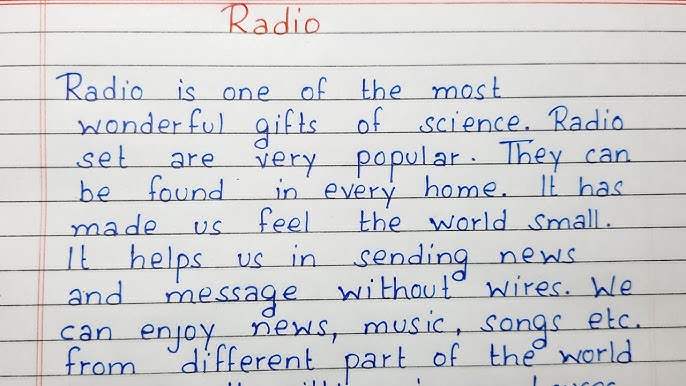 Radio
Radio is one of the most
wonderful gifts of science. Radio
set are very popular. They can
be found in every home. It has
made us feel the world small.
It helps us in sending news
and message without wires. We
can enjoy news, music, songs etc.
from different part of the world